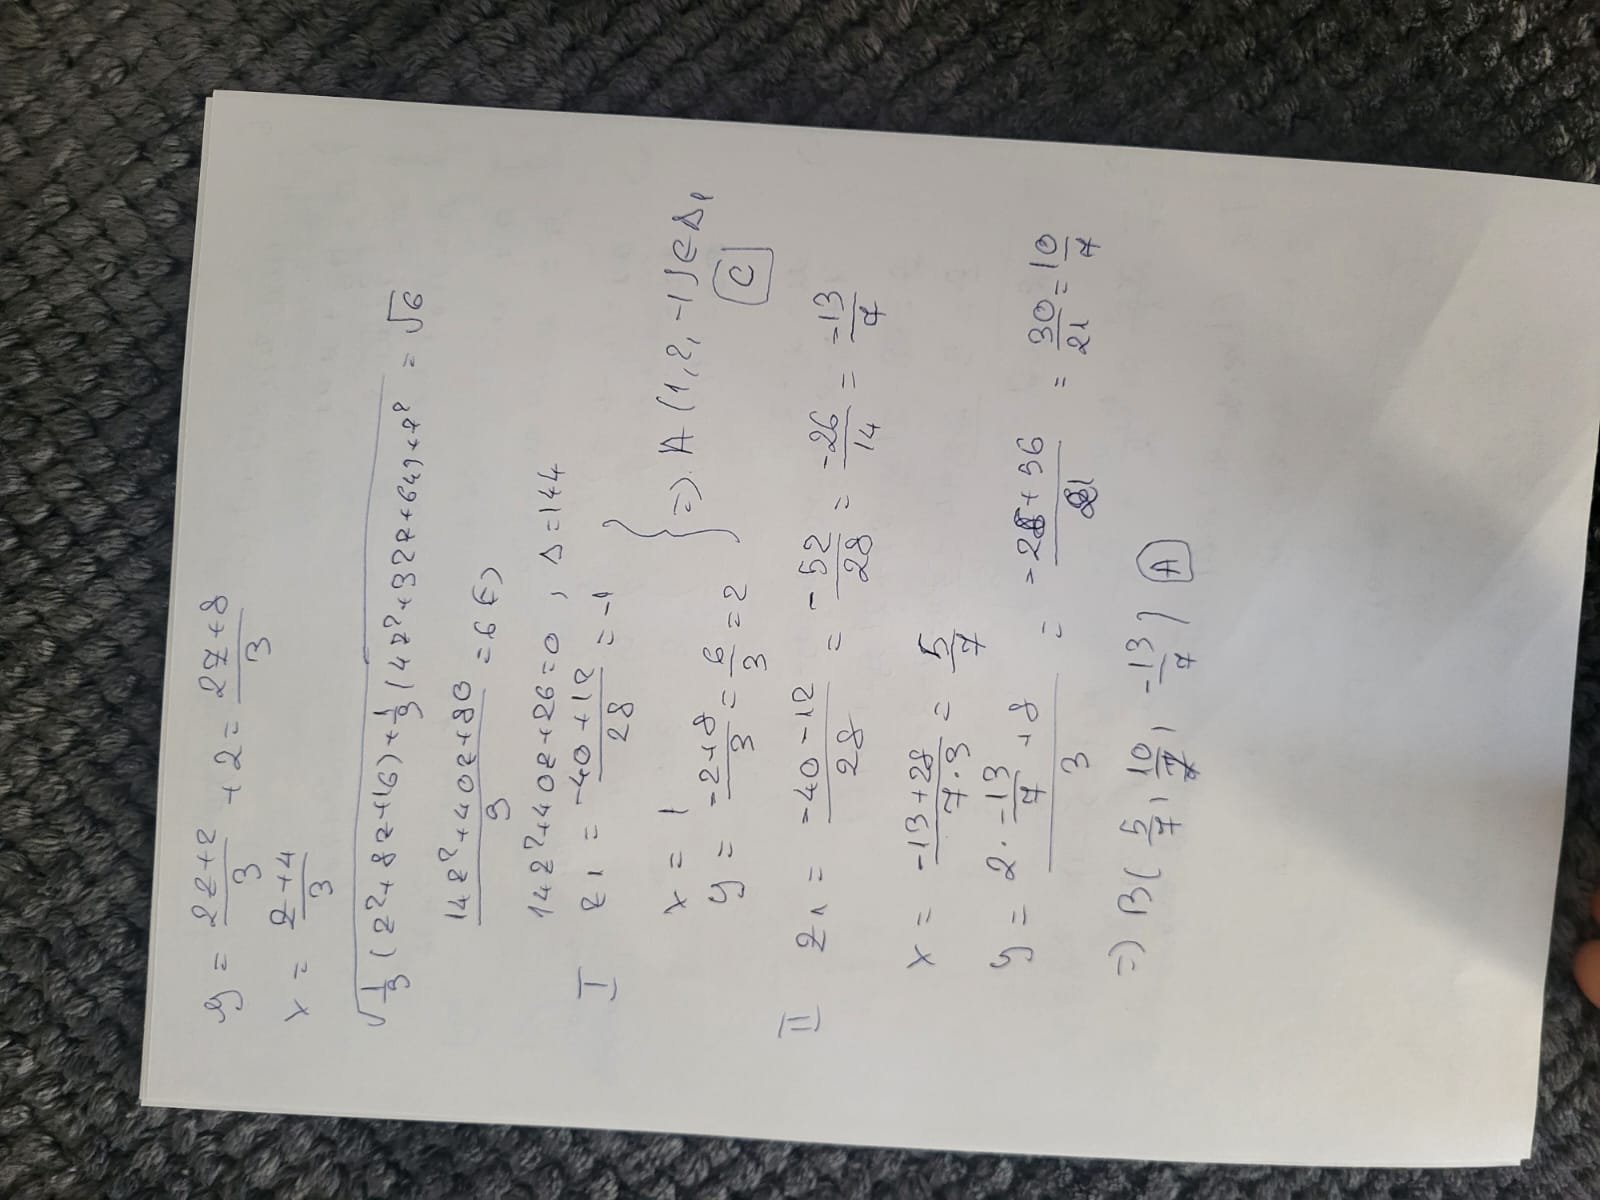 y = \frac{2z+2}{3} + 2 = \frac{2z+8}{3}
x = \frac{z+4}{3}
\sqrt{\frac{1}{9}(z²+8z+16)+\frac{1}{9}(4z²+32z+64)+z²} = √6
\frac{14z²+40z+80}{9} = 6 (=)
14z²+40z+26=0 , Δ=144
I z₁ = \frac{-40+12}{28} = -1
x = 1
y = \frac{-2+8}{3} = \frac{6}{3} = 2
} => A(1,2,-1) ∈ Δ₁
C
II z₁ = \frac{-40-12}{28} = \frac{-52}{28} = \frac{-26}{14} = \frac{-13}{7}
x = \frac{-13+28}{7·3} = \frac{5}{7}
y = \frac{2·\frac{-13}{7}+8}{3} = \frac{-26+56}{21} = \frac{30}{21} = \frac{10}{7}
=> B(\frac{5}{7}, \frac{10}{7}, \frac{-13}{7}) A